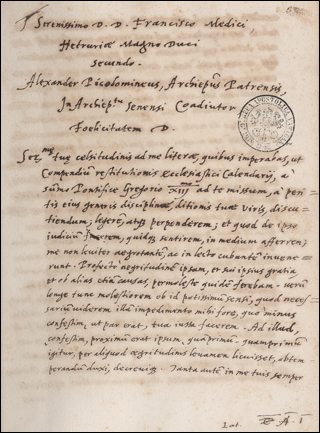 Serenissimo D. D. Francisco Medici,
Hetruriæ Magno Duci
secundo.
Alexander Picolomineus, Archiepus Patrensis,
In Archiep.tu Senensi Coadiutor
Foelicitatem D.
Ser.mę tuę celsitudinis ad me literæ, quibus imperabas, ut
Compendiũ restitutionis ecclesiastici Calendarij, a
sũmo Pontifice Gregorio XIII ad te missum, à peri-
tis eius generis disciplinæ, ditionis tuæ viris, discu-
tiendum; legerẽ, atqȝ perpenderem; et quod de ipso
iudiciũ facerem, quidqȝ sentirem, in medium afferrem;
me non leuiter ægrotantẽ, ac in lecto cubantẽ inuene-
runt. Profectò ægritudinẽ ipsam, et sui ipsius gratia
et ob alias etiã causas, permolestè quidẽ ferebam. uerũ
longe tunc molestiorem ob id potissimũ sensi, quod neces-
sariũ uiderem illã impedimento mihi fore, quo minus
confestim, ut par erat, tua iussa facerem. Ad illud,
confestim, proximũ erat ipsum, quàprimũ. quamprimũ
igitur, per aliquod ægritudinis leuamen licuisset, obtem-
perandũ duxi, decreuiqȝ. Tanta autẽ in me tuis semper
Lat. A. 1